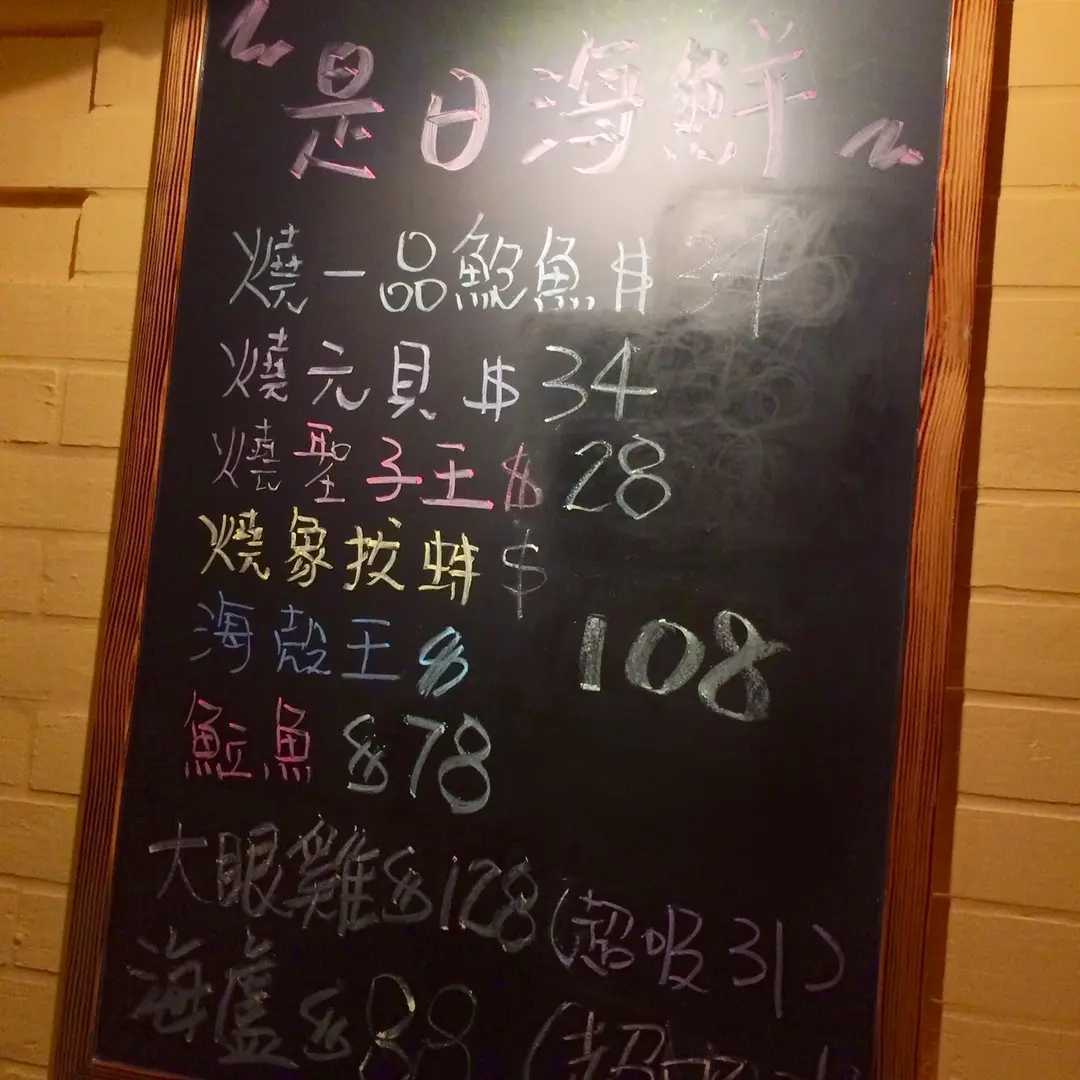 是日海鮮
燒一品鮑魚 $34
燒元貝 $34
燒聖子王 $28
燒象拔蚌 $
海殼王 $ 108
䱇魚 $78
大眼雞 $128 (超吸引)
海盧 $88 (超